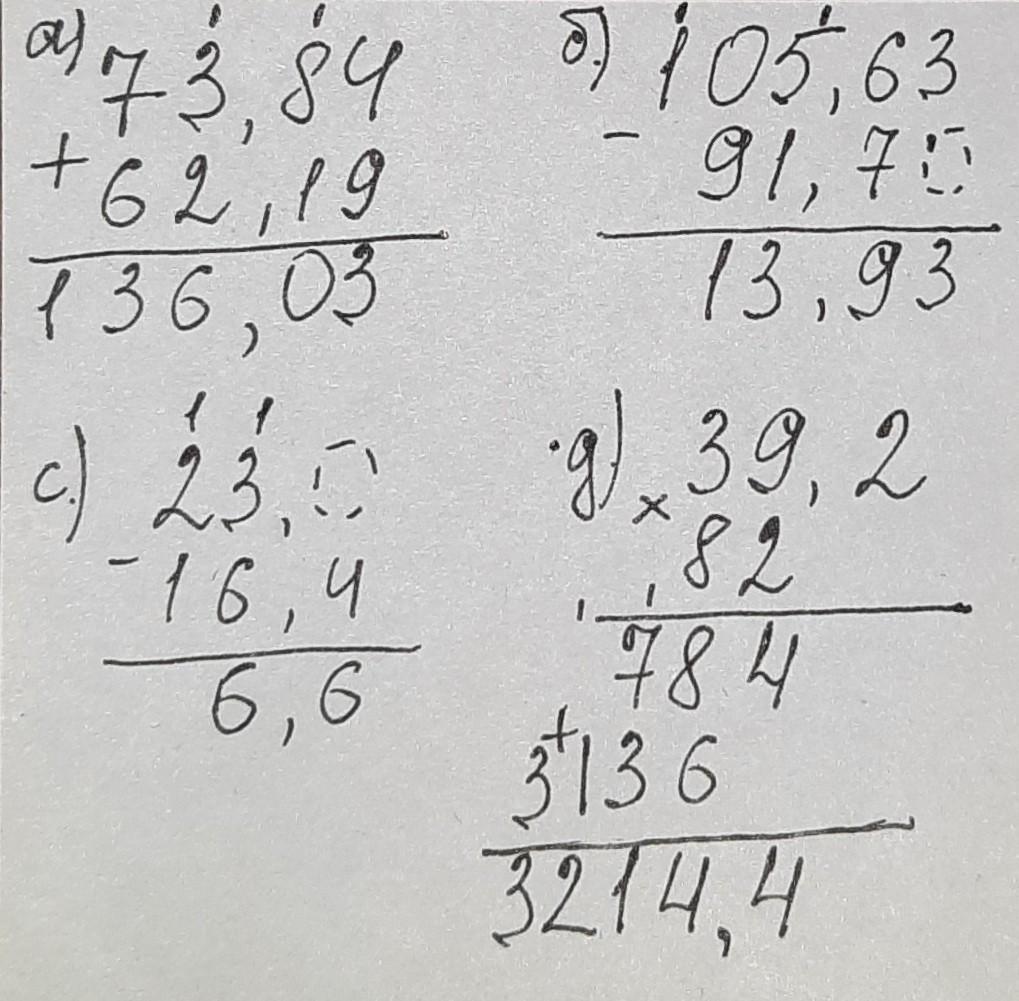 а) 73,84
+ 62,19
136,03
б.) 105,63
- 91,70
13,93
с.) 23,0
- 16,4
6,6
д) × 39,2
82
784
+ 3136
3214,4